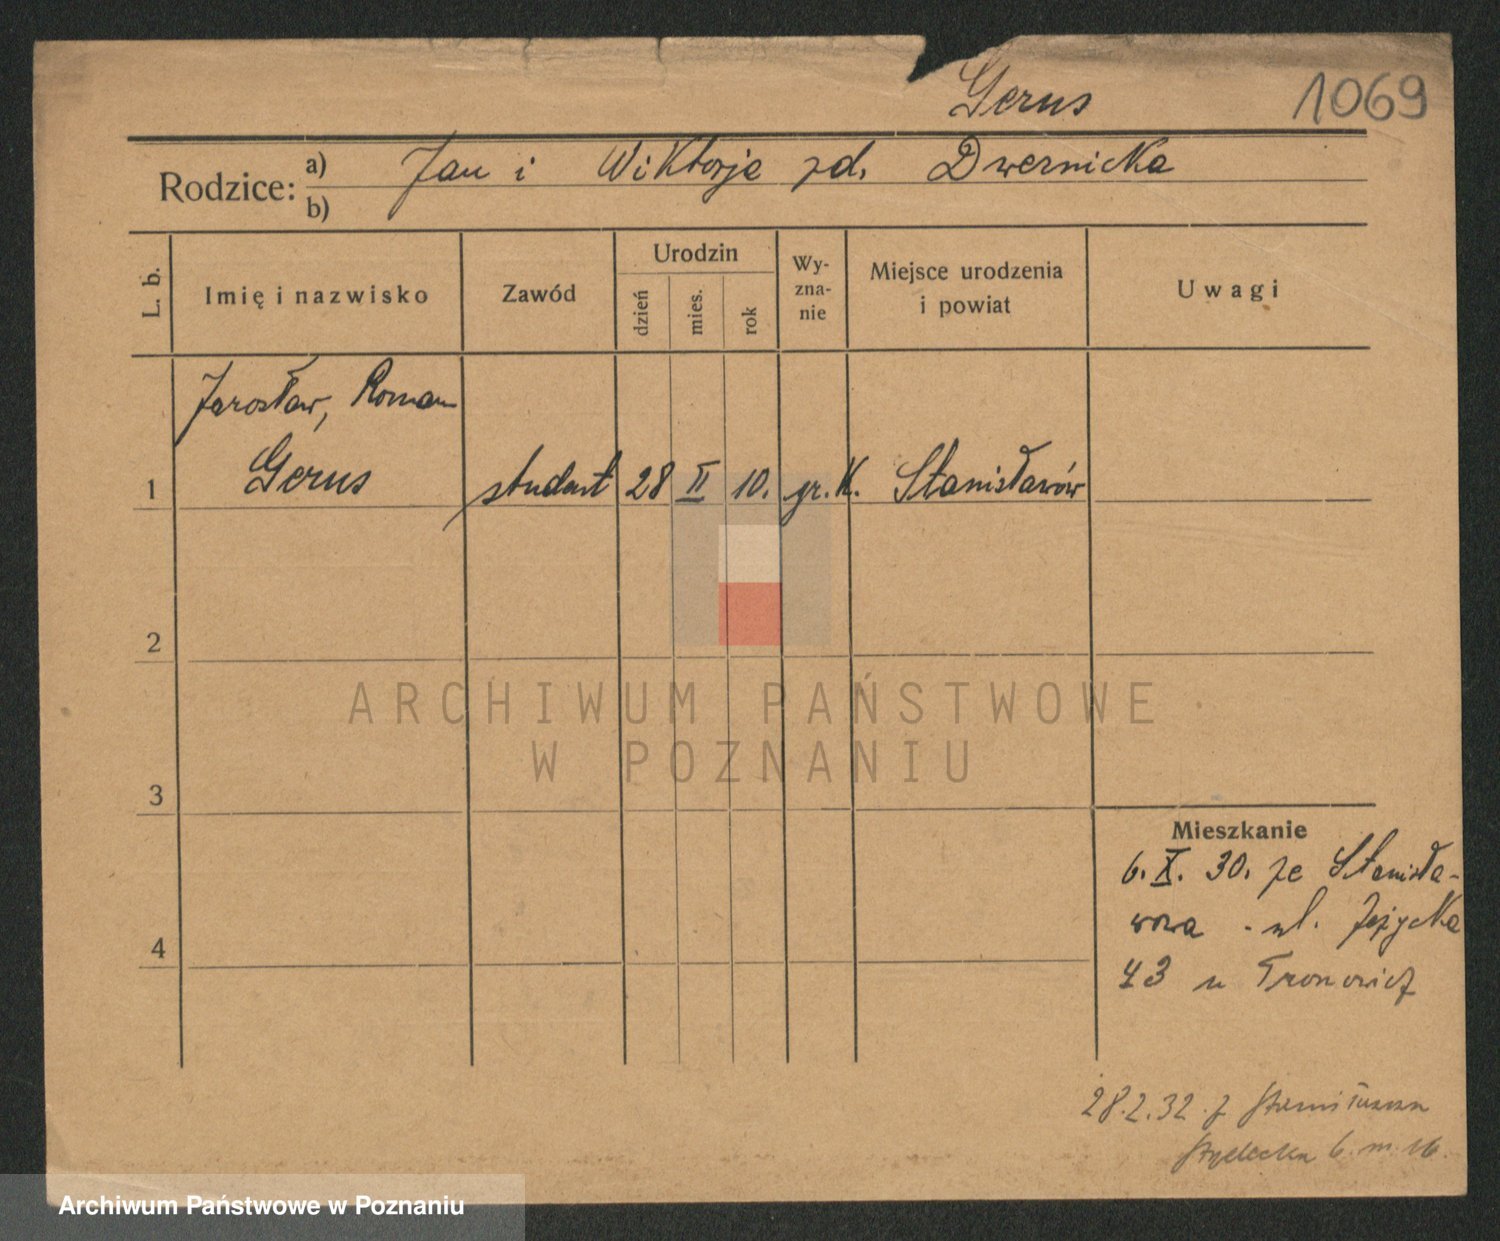 Gerus 1069
Rodzice: a) Jan i Wiktorja zd. Dwernicka
b)
L. b. Imię i nazwisko Zawód Urodzin dzień mies. rok Wy-zna-nie Miejsce urodzenia i powiat Uwagi
Jarosław, Roman
1 Gerus student 28 II 10. gr. K. Stanisławów
2
ARCHIWUM PAŃSTWOWE
W POZNANIU
3
Mieszkanie
6. X. 30. ze Stanisła-
wowa - ul. Jeżycka
4
43 u Tronowicz
28.2.32 z Stanisławowa
6 m. 16.
Archiwum Państwowe w Poznaniu